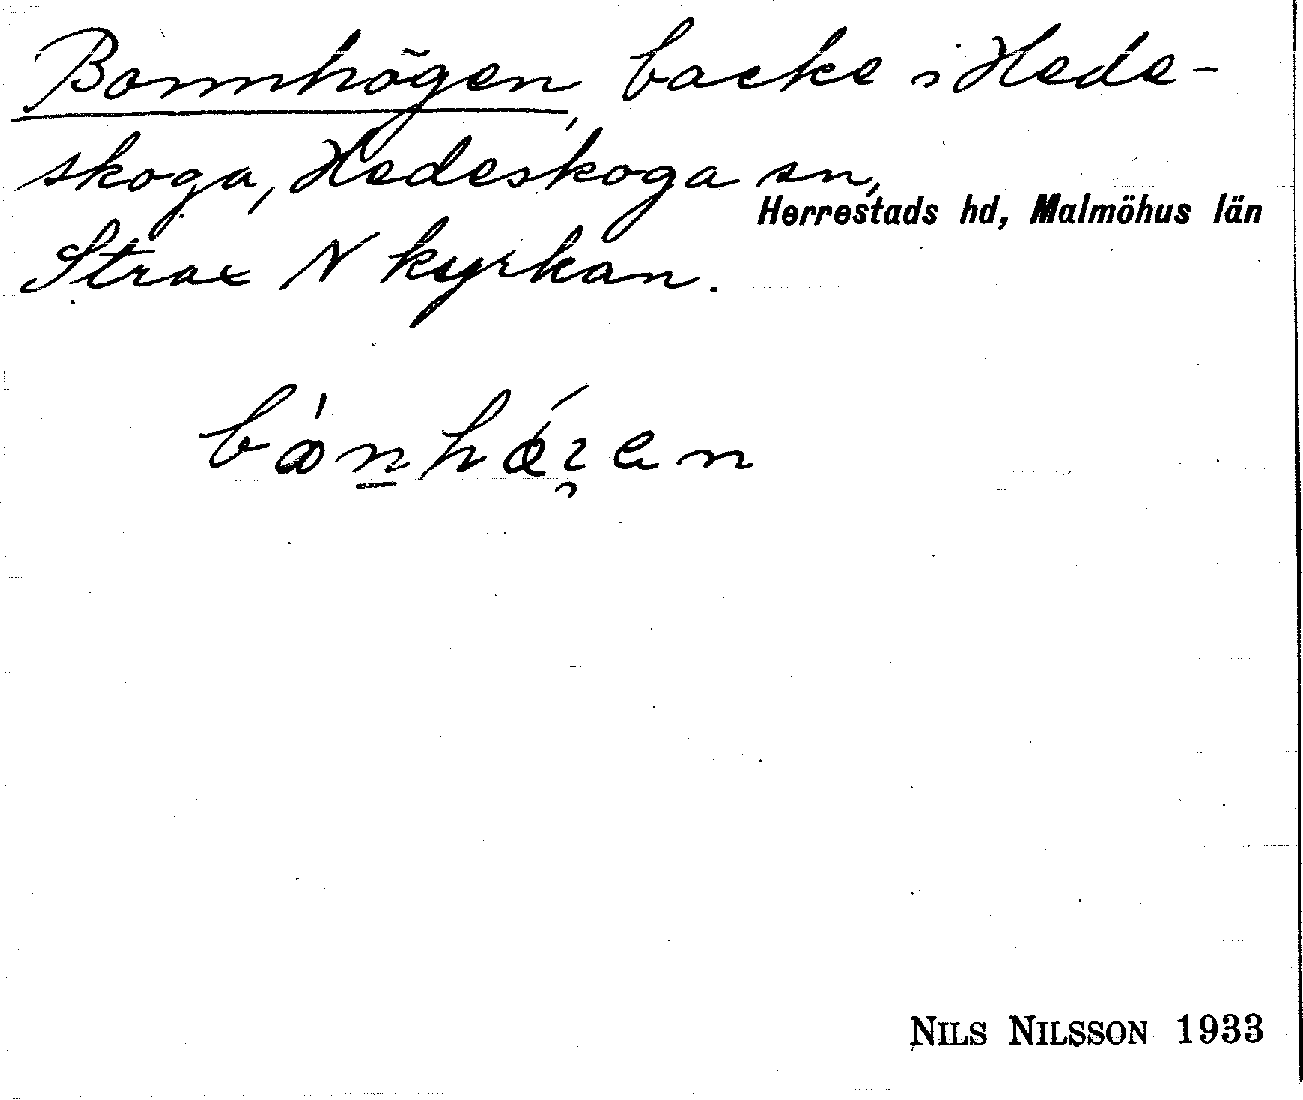 Bonnhögen, backe i Hede-
skoga, Hedeskoga sn,
Herrestads hd, Malmöhus län
Strax N kyrkan.
NILS NILSSON 1933